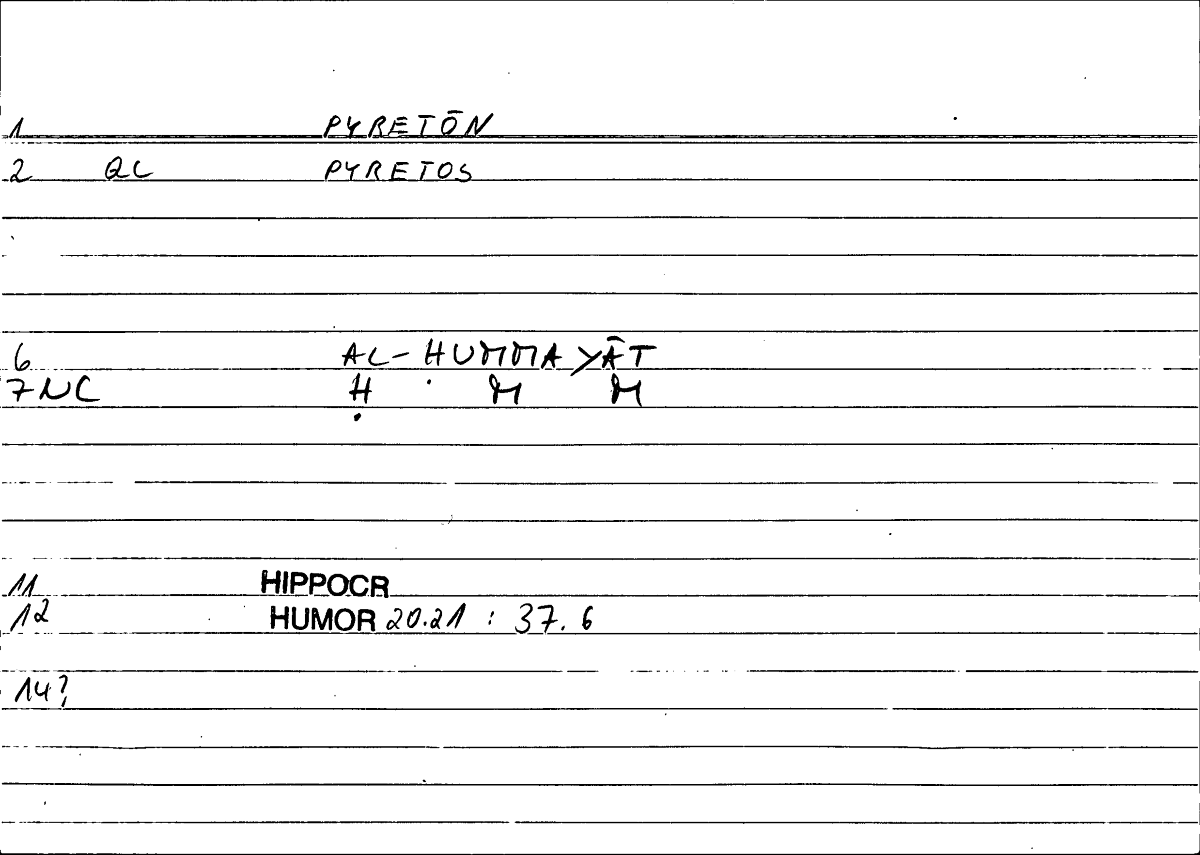 1 PYRETŌN
2 QC PYRETOS
6 AL-ḤUMMAYĀT
7 NC Ḥ M M
11 HIPPOCR
12 HUMOR 20.21 : 37.6
14?